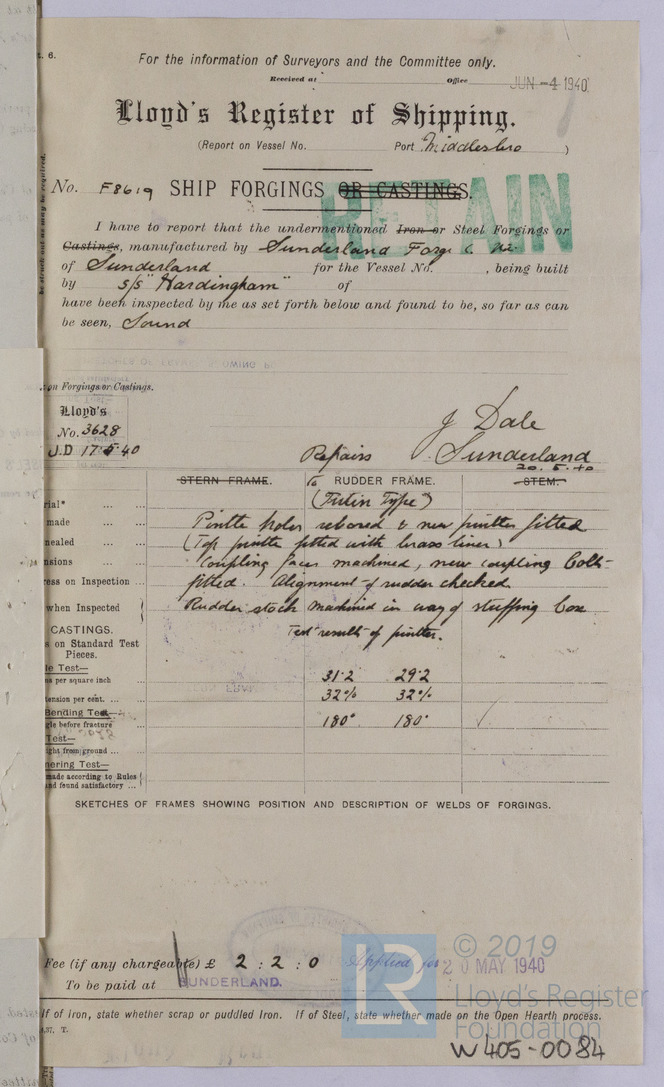 . 6.
For the information of Surveyors and the Committee only.
Received at Office JUN -4 1940
Lloyd's Register of Shipping.
(Report on Vessel No. Port Middlesbro )
No. F8619 SHIP FORGINGS OR CASTINGS.
RETAIN
I have to report that the undermentioned Iron or Steel Forgings or
Castings, manufactured by Sunderland Forge
of Sunderland for the Vessel No. , being built
by S/S "Hardingham" of
have been inspected by me as set forth below and found to be, so far as can
be seen, Sound
on Forgings or Castings.
Lloyd's
No. 3628
J.D 17.5.40
J Dale
Repairs Sunderland
20.5.40
STERN FRAME. To RUDDER FRAME. STEM.
rial*
(Fulin Type)
made Pintle holes rebored & new pintles fitted
nealed (Top pintle fitted with brass liner)
nsions Coupling faces machined, new coupling bolts
ess on Inspection ... fitted. Alignment of rudder checked
when Inspected Rudder stock machined in way of stuffing box
CASTINGS. Test results of pintles.
s on Standard Test
Pieces.
le Test—
ns per square inch ... 31·2 29·2
tension per cent. ... 32% 32%
Bending Test—
gle before fracture ... 180° 180°
Test—
ght from ground ...
mering Test—
made according to Rules
and found satisfactory ...
SKETCHES OF FRAMES SHOWING POSITION AND DESCRIPTION OF WELDS OF FORGINGS.
Fee (if any chargeable) £ 2 : 2 : 0 Applied for 20 MAY 1940
To be paid at SUNDERLAND.
If of Iron, state whether scrap or puddled Iron. If of Steel, state whether made on the Open Hearth process.
.37. T.
LR
© 2019
Lloyd's Register
Foundation
W405-0084